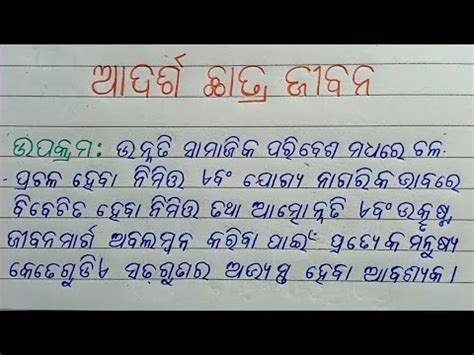 ଆଦର୍ଶ ଛାତ୍ର ଜୀବନ
ଉପକ୍ରମ: ଉନ୍ନତି ସାମାଜିକ ପରିବେଶ ମଧରେ ଚଳ-
ପ୍ରଚଳ ହେବା ନିମିତ୍ତ ଏବଂ ଯୋଗ୍ୟ ନାଗରିକ ଭାବରେ
ବିବେଚିତ ହେବା ନିମିତ୍ତ ତଥା ଆତ୍ମୋନ୍ନତି ଏବଂ ଉତ୍କୃଷ୍ଟ
ଜୀବନମାର୍ଗ ଅବଲମ୍ବନ କରିବା ପାଇଁ ପ୍ରତ୍ୟେକ ମନୁଷ୍ୟ
କେତେଗୁଡିଏ ସତ୍‌ଗୁଣର ଅଭ୍ୟସ୍ତ ହେବା ଆବଶ୍ୟକ।